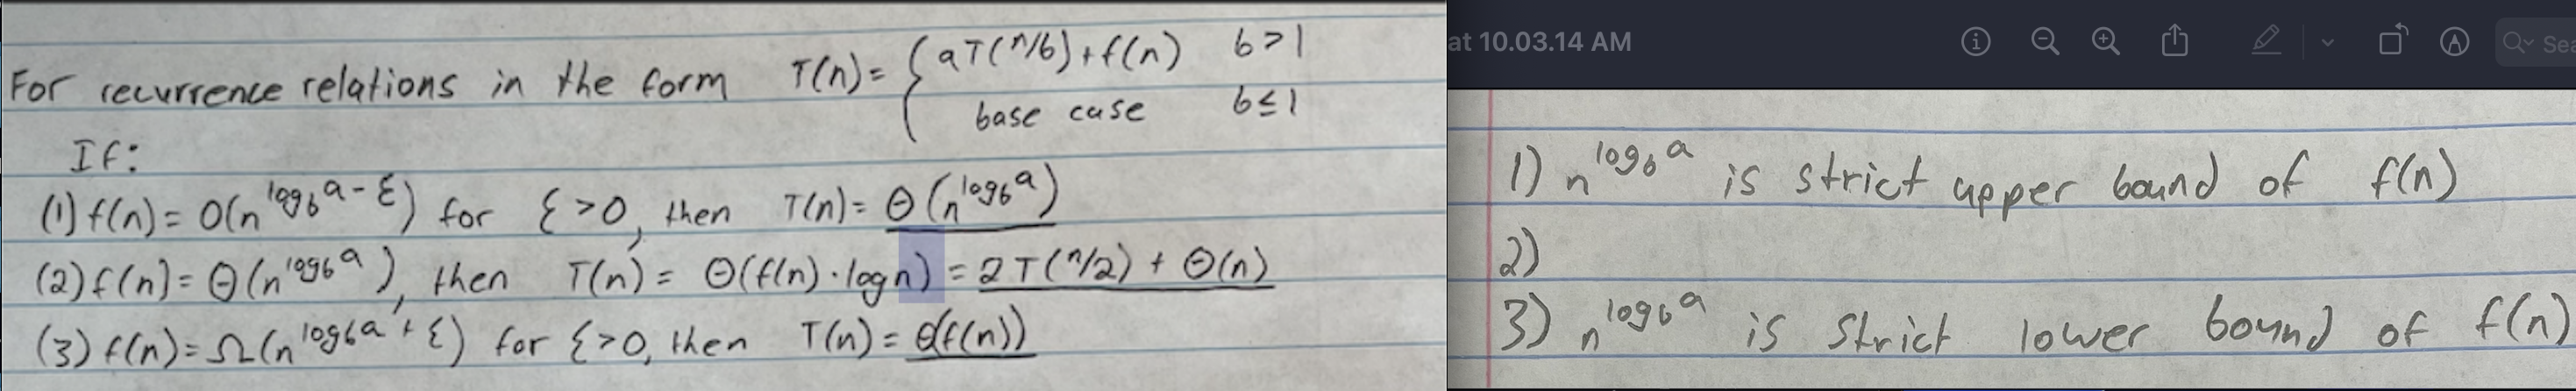 For recurrence relations in the form T(n) = { aT(n/b) + f(n) b > 1
base case b ≤ 1
If:
(1) f(n) = O(n^log_b a - ε) for ε > 0, then T(n) = Θ(n^log_b a)
(2) f(n) = Θ(n^log_b a), then T(n) = Θ(f(n) · log n) = 2T(n/2) + Θ(n)
(3) f(n) = Ω(n^log_b a + ε) for ε > 0, then T(n) = Θ(f(n))
at 10.03.14 AM
Sea
1) n^log_b a is strict upper bound of f(n)
2)
3) n^log_b a is strict lower bound of f(n)